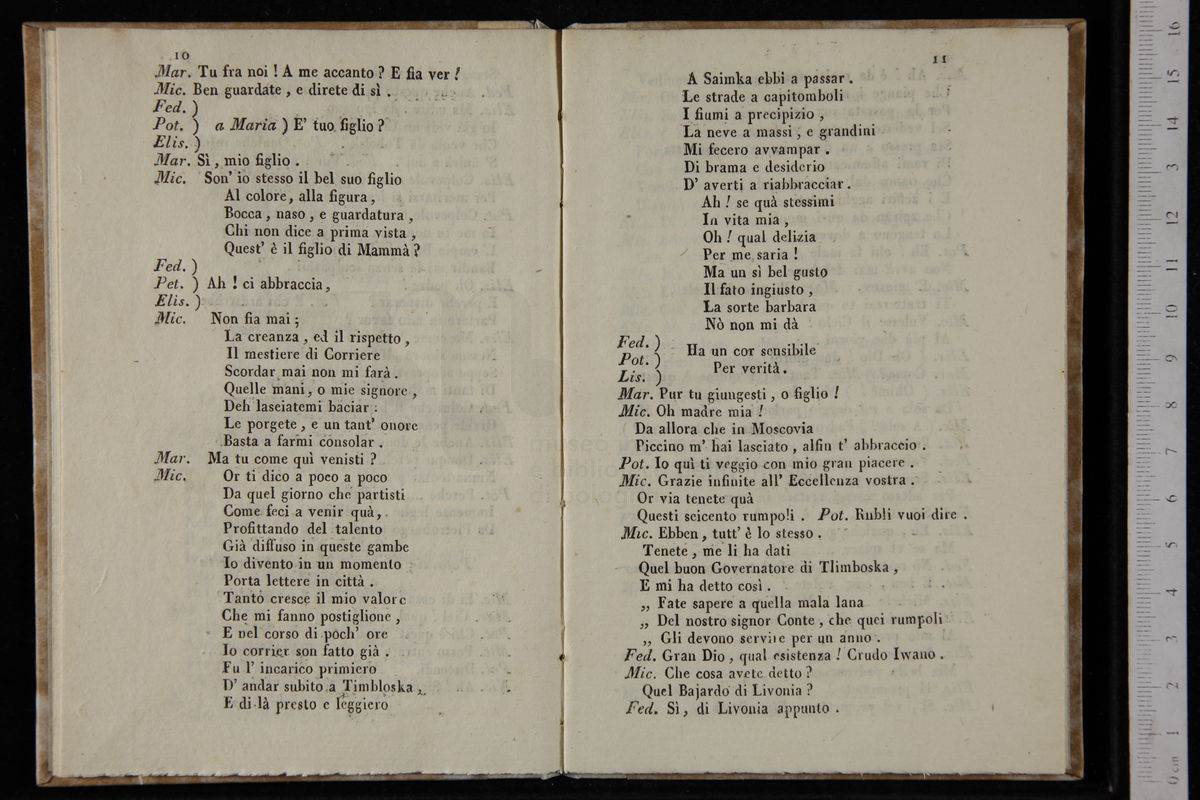 10
Mar. Tu fra noi ! A me accanto ? E fia ver !
Mic. Ben guardate , e direte di sì .
Fed. )
Pot. ) a Maria ) E' tuo figlio ?
Elis. )
Mar. Sì , mio figlio .
Mic. Son' io stesso il bel suo figlio
Al colore, alla figura ,
Bocca , naso , e guardatura ,
Chi non dice a prima vista ,
Quest' è il figlio di Mammà ?
Fed. )
Pet. ) Ah ! ci abbraccia ,
Elis. )
Mic. Non fia mai ;
La creanza , ed il rispetto ,
Il mestiere di Corriere
Scordar mai non mi farà .
Quelle mani , o mie signore ,
Deh laseiatemi baciar :
Le porgete , e un tant' onore
Basta a farmi consolar .
Mar. Ma tu come quì venisti ?
Mic. Or ti dico a poco a poco
Da quel giorno che partisti
Come feci a venir quà ,
Profittando del talento
Già diffuso in queste gambe
Io divento in un momento
Porta lettere in città .
Tanto cresce il mio valore
Che mi fanno postiglione ,
E nel corso di poch' ore
Io corrier son fatto già .
Fu l' incarico primiero
D' andar subito a Timbloska ,
E di là presto e leggiero
11
A Saimka ebbi a passar .
Le strade a capitomboli
I fiumi a precipizio ,
La neve a massi , e grandini
Mi fecero avvampar .
Di brama e desiderio
D' averti a riabbracciar .
Ah ! se quà stessimi
In vita mia ,
Oh ! qual delizia
Per me saria !
Ma un sì bel gusto
Il fato ingiusto ,
La sorte barbara
Nò non mi dà
Fed. )
Pot. ) Ha un cor sensibile
Lis. ) Per verità .
Mar. Pur tu giungesti , o figlio !
Mic. Oh madre mia !
Da allora che in Moscovia
Piccino m' hai lasciato , alfin t' abbraccio .
Pot. Io quì ti veggio con mio gran piacere .
Mic. Grazie infinite all' Eccellenza vostra .
Or via tenete quà
Questi seicento rumpoli . Pot. Rubli vuoi dire .
Mic. Ebben , tutt' è lo stesso .
Tenete , me li ha dati
Quel buon Governatore di Tlimboska ,
E mi ha detto così .
„ Fate sapere a quella mala lana
„ Del nostro signor Conte , che quei rumpoli
„ Gli devono servire per un anno .
Fed. Gran Dio , qual esistenza ! Crudo Iwano .
Mic. Che cosa avete detto ?
Quel Bajardo di Livonia ?
Fed. Sì , di Livonia appunto .